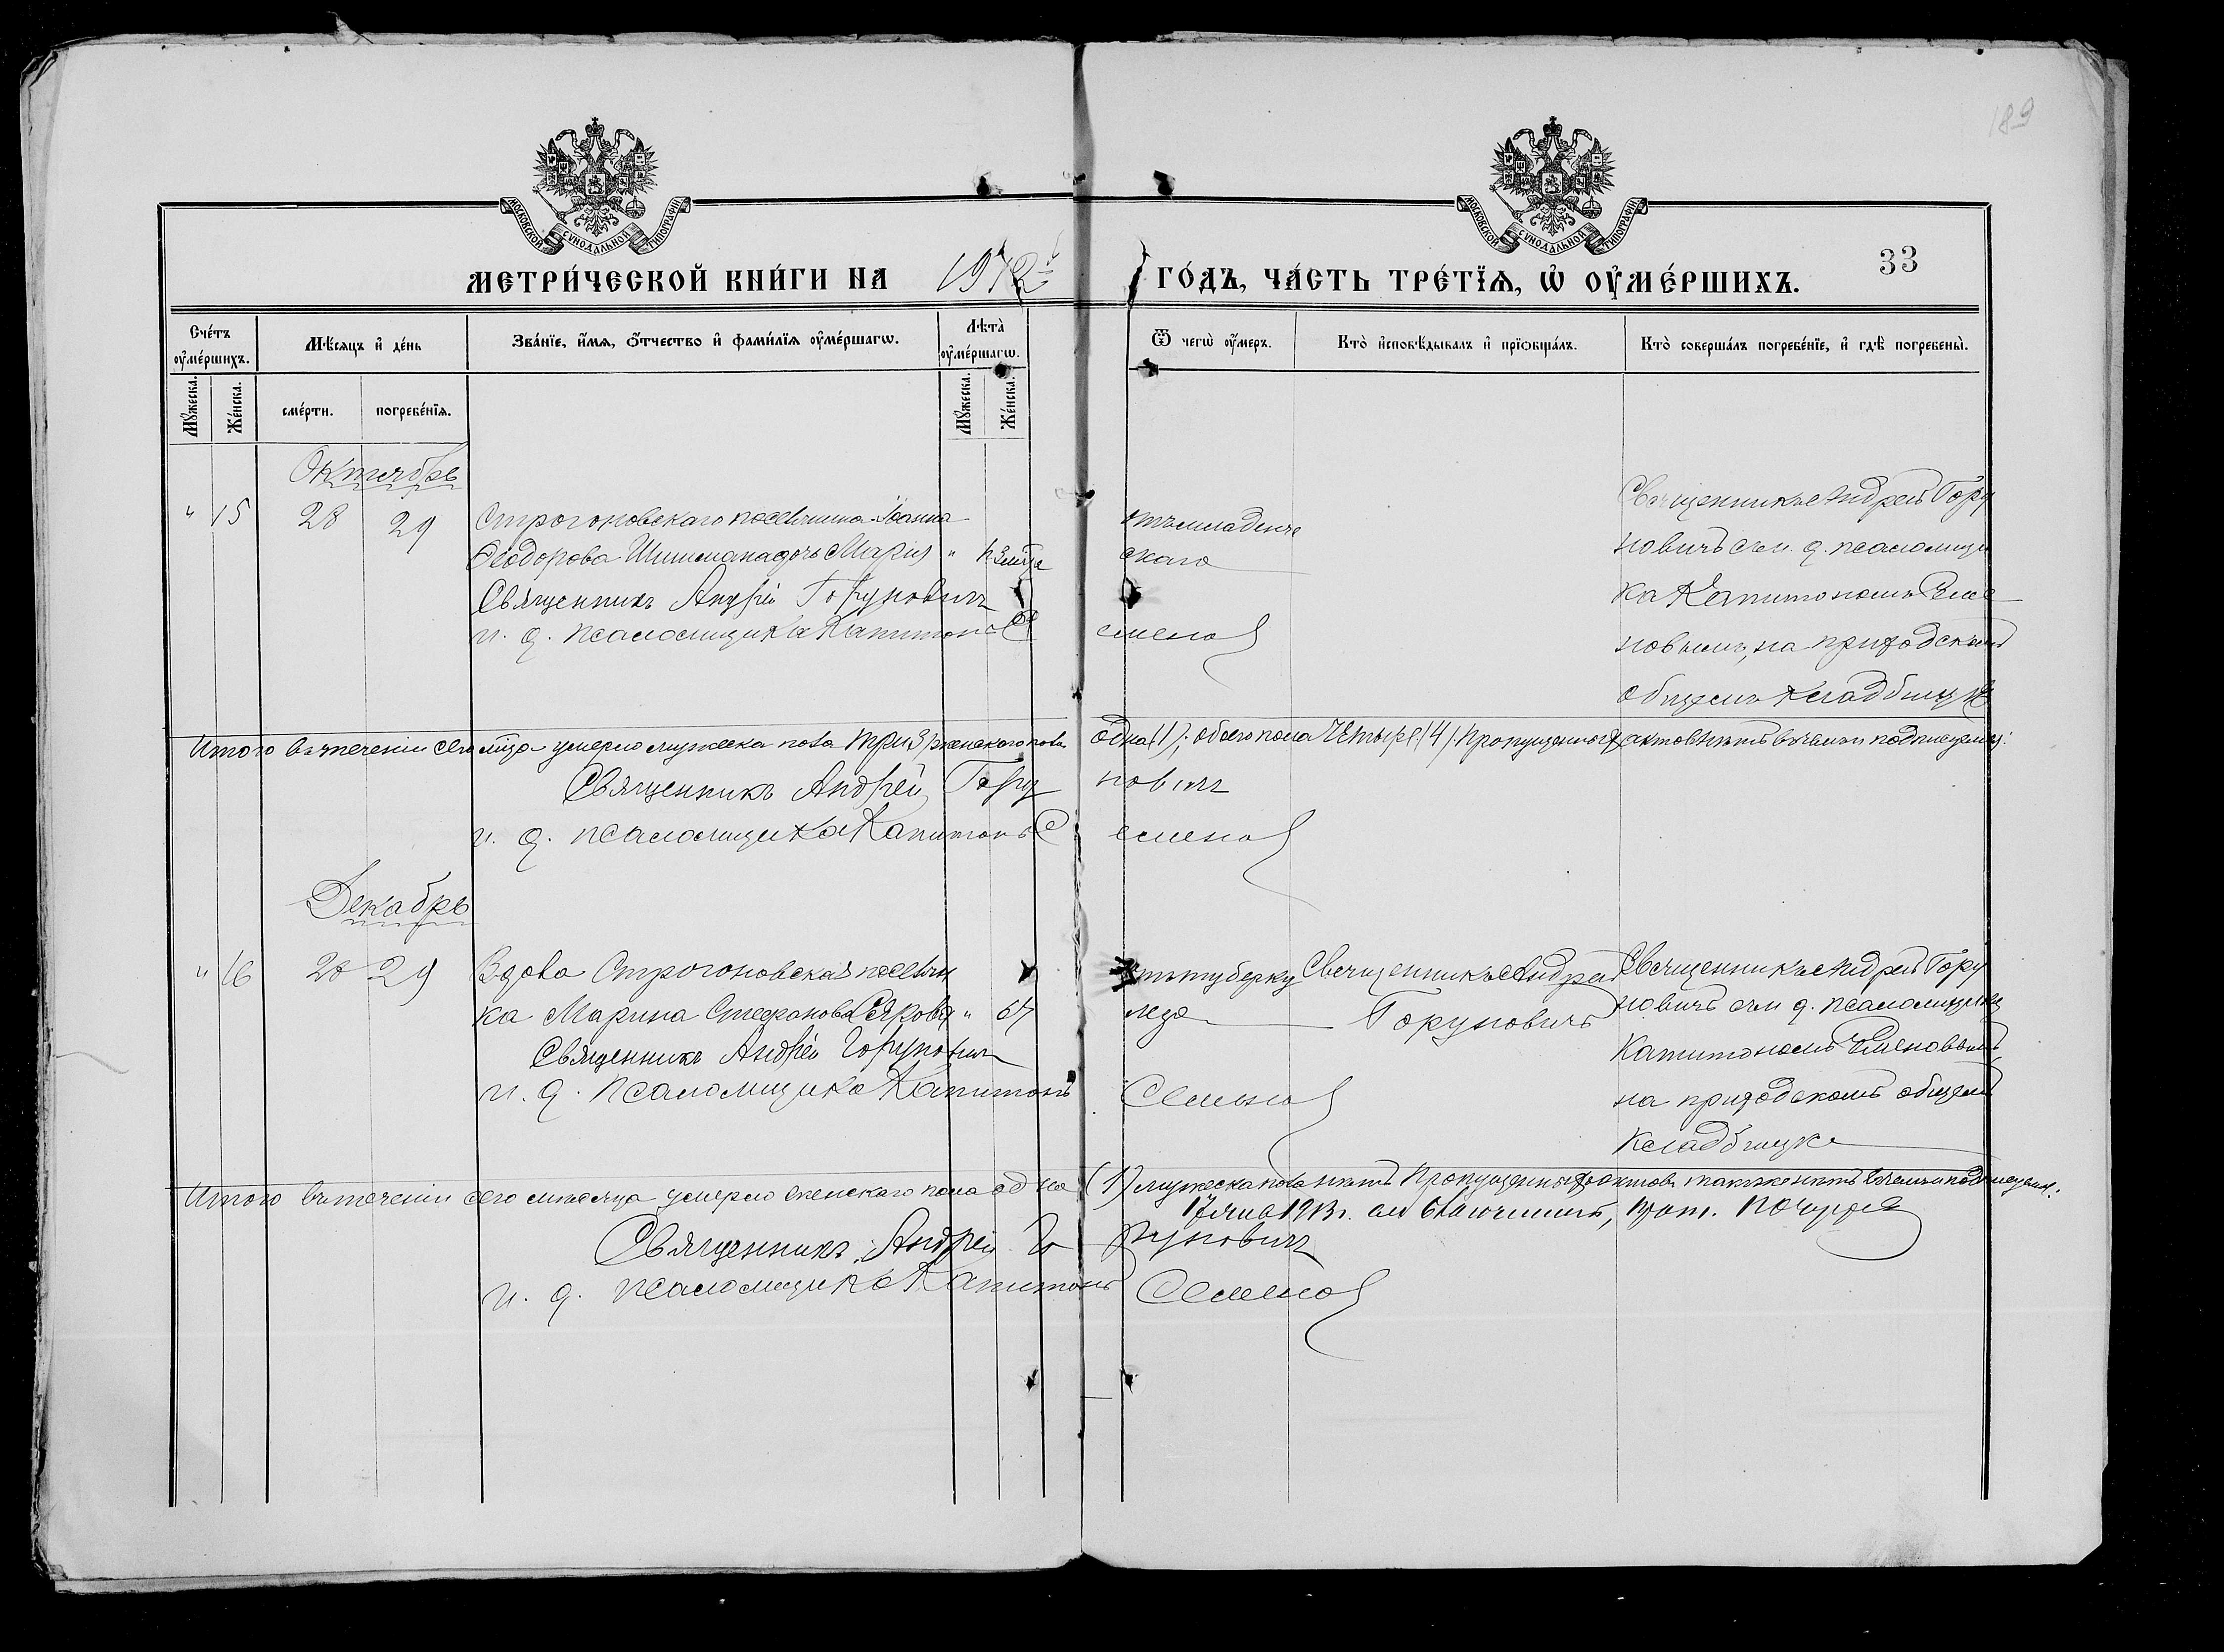 189
МОСКОВСКОЙ СѴНОДАЛЬНОЙ ТИПОГРАФІИ
МОСКОВСКОЙ СѴНОДАЛЬНОЙ ТИПОГРАФІИ
МЕТРИ́ЧЕСКОЙ КНИ́ГИ НА 1912й ГО́ДЪ, ЧА́СТЬ ТРЕ́ТЇѦ, Ѡ҆ ОУ҆МЕ́РШИХЪ.
33
Сче́тъ оу҆ме́ршихъ.
Мѣ́сяцъ и҆ де́нь
Зва́нїе, и҆́мя, ѻ҆́тчество и҆ фами́лїя оу҆ме́ршагѡ.
Лѣта̀ оу҆ме́ршагѡ.
Ѿ чегѡ̀ оу҆́меръ.
Кто̀ и҆сповѣ́дывалъ и҆ прїѻбща́лъ.
Кто̀ соверша́лъ погребе́нїе, и҆ гдѣ̀ погребены̀.
Мꙋ́жеска.
Же́нска.
сме́рти.
погребе́нїя.
Мꙋ́жеска.
Же́нска.
Октябрь
" 15 28 29
Строгоновскаго поселянина Іоанна
Ѳеодорова Шишмана дочь Марія "
Священникъ Андрей Горунович
и. д. псаломщика Капитонъ Се
отъ младенче
скаго
еменов
Священникъ Андрей Гору
новичъ съ и. д. псаломщи
ка Капитономъ Семе
новымъ, на приходскомъ
общемъ кладбищѣ
Итого въ теченіи сего мѣсяца умерло мужеска пола три 3, женскаго пола одна (1); обоего пола четыре (4). Пропущенных актовъ нѣтъ въ чемъ и подписуемся:
Священникъ Андрей Гору нович
и. д. псаломщика Капитонъ С еменов
Декабрь
" 16 28 29
Вдова Строгоновская поселян
ка Марина Стефанова " 67
Священникъ Андрей Горунович
и. д. Псаломщика Капитонъ Семенов
отъ туберку
леза
Священникъ Андрей
Горуновичъ
Священникъ Андрей Гору
новичъ съ и. д. псаломщика
Капитономъ Семеновымъ
на приходскомъ общемъ
кладбищѣ
Итого въ теченіи сего мѣсяца умерло женскаго пола одна (1) мужеска пола нѣтъ Пропущенных актовъ также нѣтъ въ чемъ и подписуемся:
1913 г.
Священникъ Андрей Го рунович
и. д. псаломщика Капитонъ Семенов